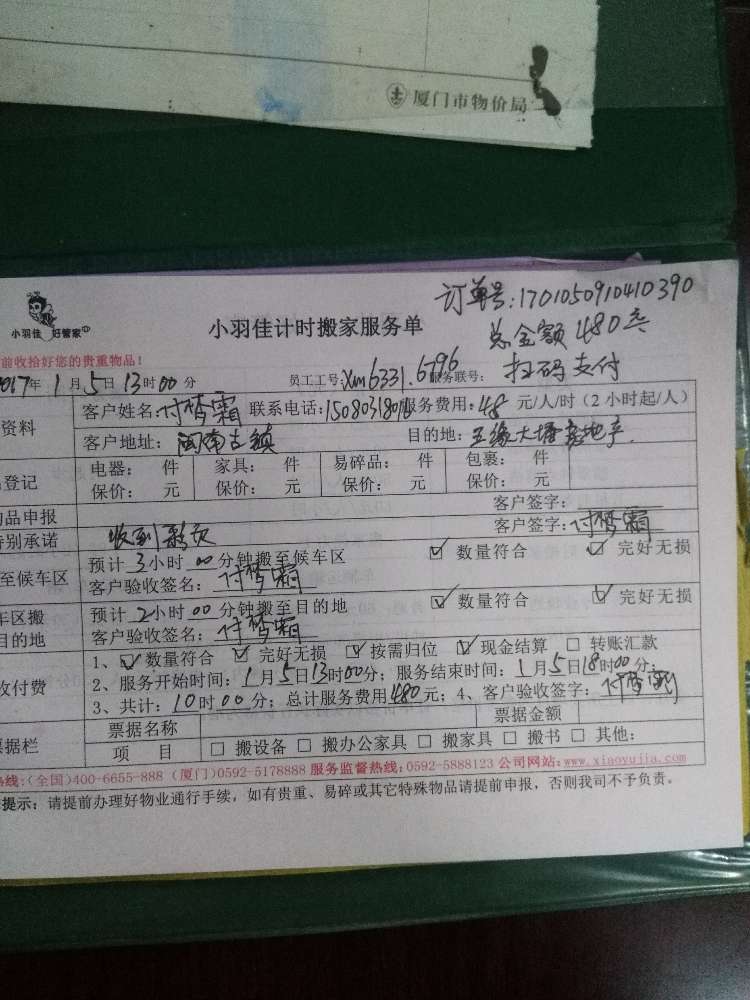 厦门市物价局
订单号:1701050910410390
小羽佳 好管家
小羽佳计时搬家服务单
总金额480元
前收拾好您的贵重物品！
扫码支付
2017年 1 月 5 日 13 时 00 分 员工工号: Xm6331.6796 服务联号:
资料 客户姓名: 付梦霜 联系电话: 服务费用: 48 元/人/时（2 小时起/人）
客户地址: 闽南古镇 目的地: 五缘大塘房地产
登记 电器: 件 家具: 件 易碎品: 件 包裹: 件
保价: 元 保价: 元 保价: 元 保价: 元
物品申报 客户签字:
特别承诺 收到彩页 客户签字: 付梦霜
至候车区 预计 3 小时 00 分钟搬至候车区 ☑ 数量符合 ☑ 完好无损
客户验收签名: 付梦霜
车区搬 预计 2 小时 00 分钟搬至目的地 ☑ 数量符合 ☑ 完好无损
目的地 客户验收签名: 付梦霜
收付费 1、☑ 数量符合 ☑ 完好无损 ☑ 按需归位 ☑ 现金结算 □ 转账汇款
2、服务开始时间: 1 月 5 日 13 时 00 分; 服务结束时间: 1 月 5 日 18 时 00 分;
3、共计: 10 时 00 分; 总计服务费用 480 元; 4、客户验收签字: 付梦霜
票据栏 票据名称 票据金额
项 目 □ 搬设备 □ 搬办公家具 □ 搬家具 □ 搬书 □ 其他:
热线:(全国)400-6655-888 (厦门)0592-5178888 服务监督热线:0592-5888123 公司网站:www.xiaoyujia.com
提示: 请提前办理好物业通行手续, 如有贵重、易碎或其它特殊物品请提前申报, 否则我司不予负责。